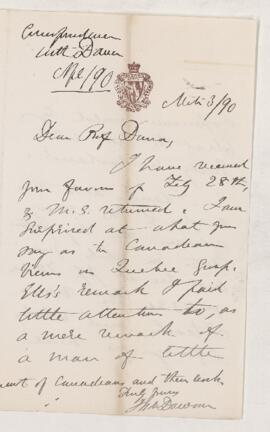 Correspondence
with Dana
Mch 3/90
Dear Prof Dana,
I have received
your favour of Feby 28th,
& M.S. returned. I am
surprised at what you
say as to Canadian
views on Quebec Group.
Ells's remark I paid
little attention to, as
a mere remark of
a man of little
of Canadians and their work
Truly yours
J Wm Dawson